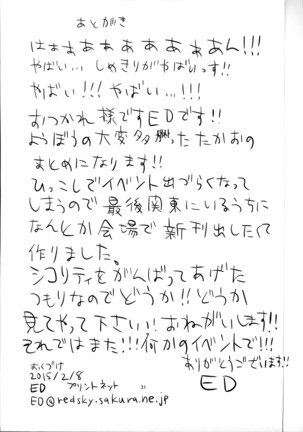 あとがき
はぁまぁぁぁぁぁぁぁん!!!
やばい… しめきりがやばいっす!!
やばい!!! やばい…!!!
おつかれ様ですEDです!!
ようぼうの大変多かったたかおの
まとめになります!!
ひっこしでイベント出づらくなって
しまうので最後関東にいるうちに
なんとか会場で新刊出したくて
作りました。
シコリティをがんばってあげた
つもりなのでどうか!!どうか
見てやって下さい!!おねがいします!!
それではまた!!!何かのイベントで!!!
ありがとうございます!!
おくづけ
2015/2/8
ED プリントネット
ED@redsky.sakura.ne.jp
ED
31